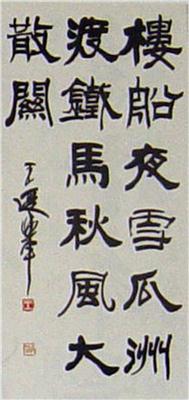 樓船夜雪瓜洲
渡鐵馬秋風大
散關